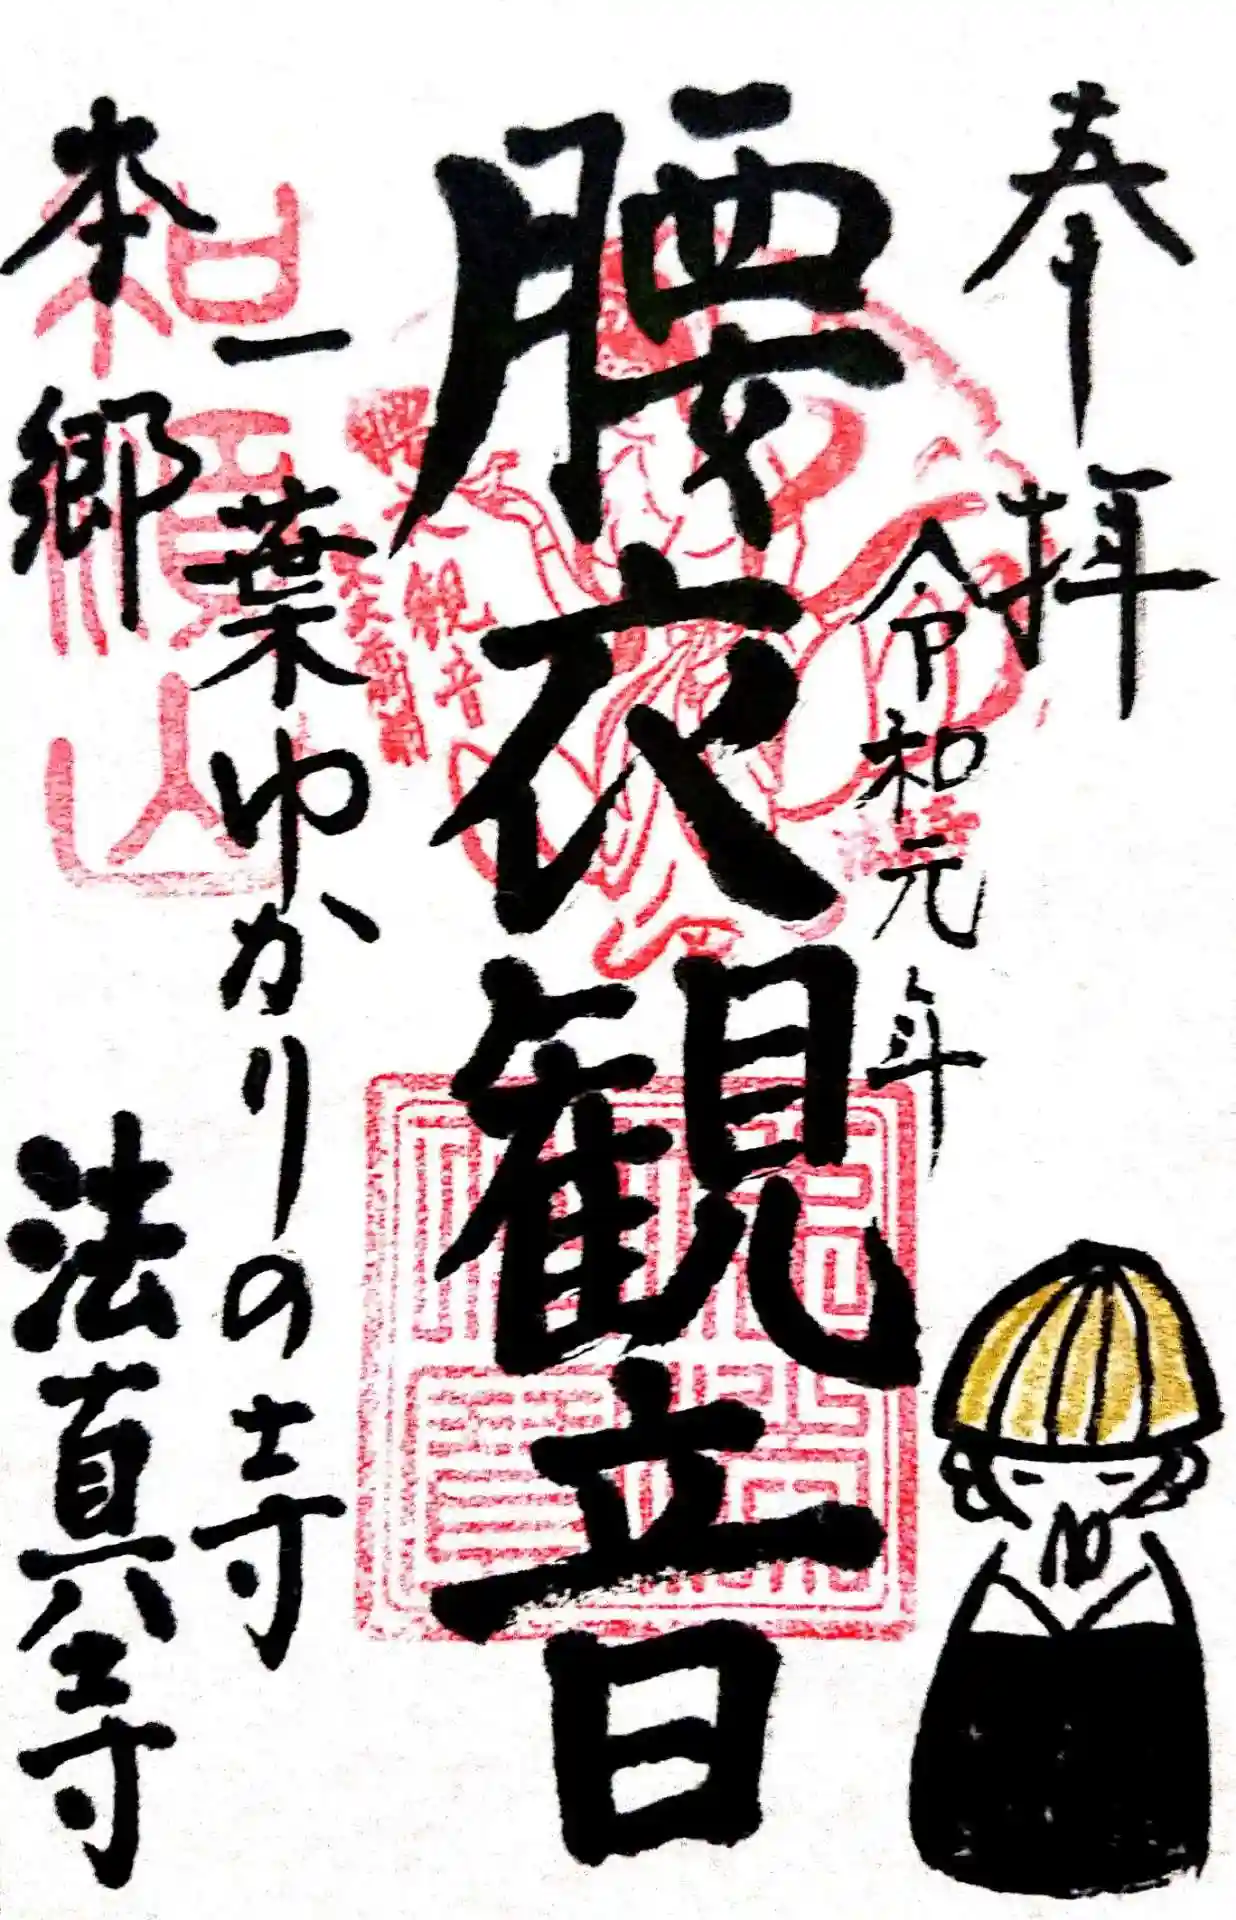 奉拝
令和元年
腰衣観音
腰衣観音
一葉ゆかりの寺
本郷
法真寺